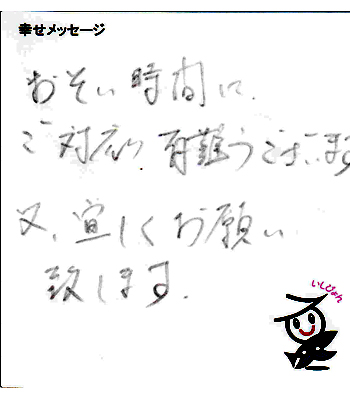 幸せメッセージ
おそい時間に、
ご対応 有難うございます
又、宜しくお願い
致します。
いしじゅん